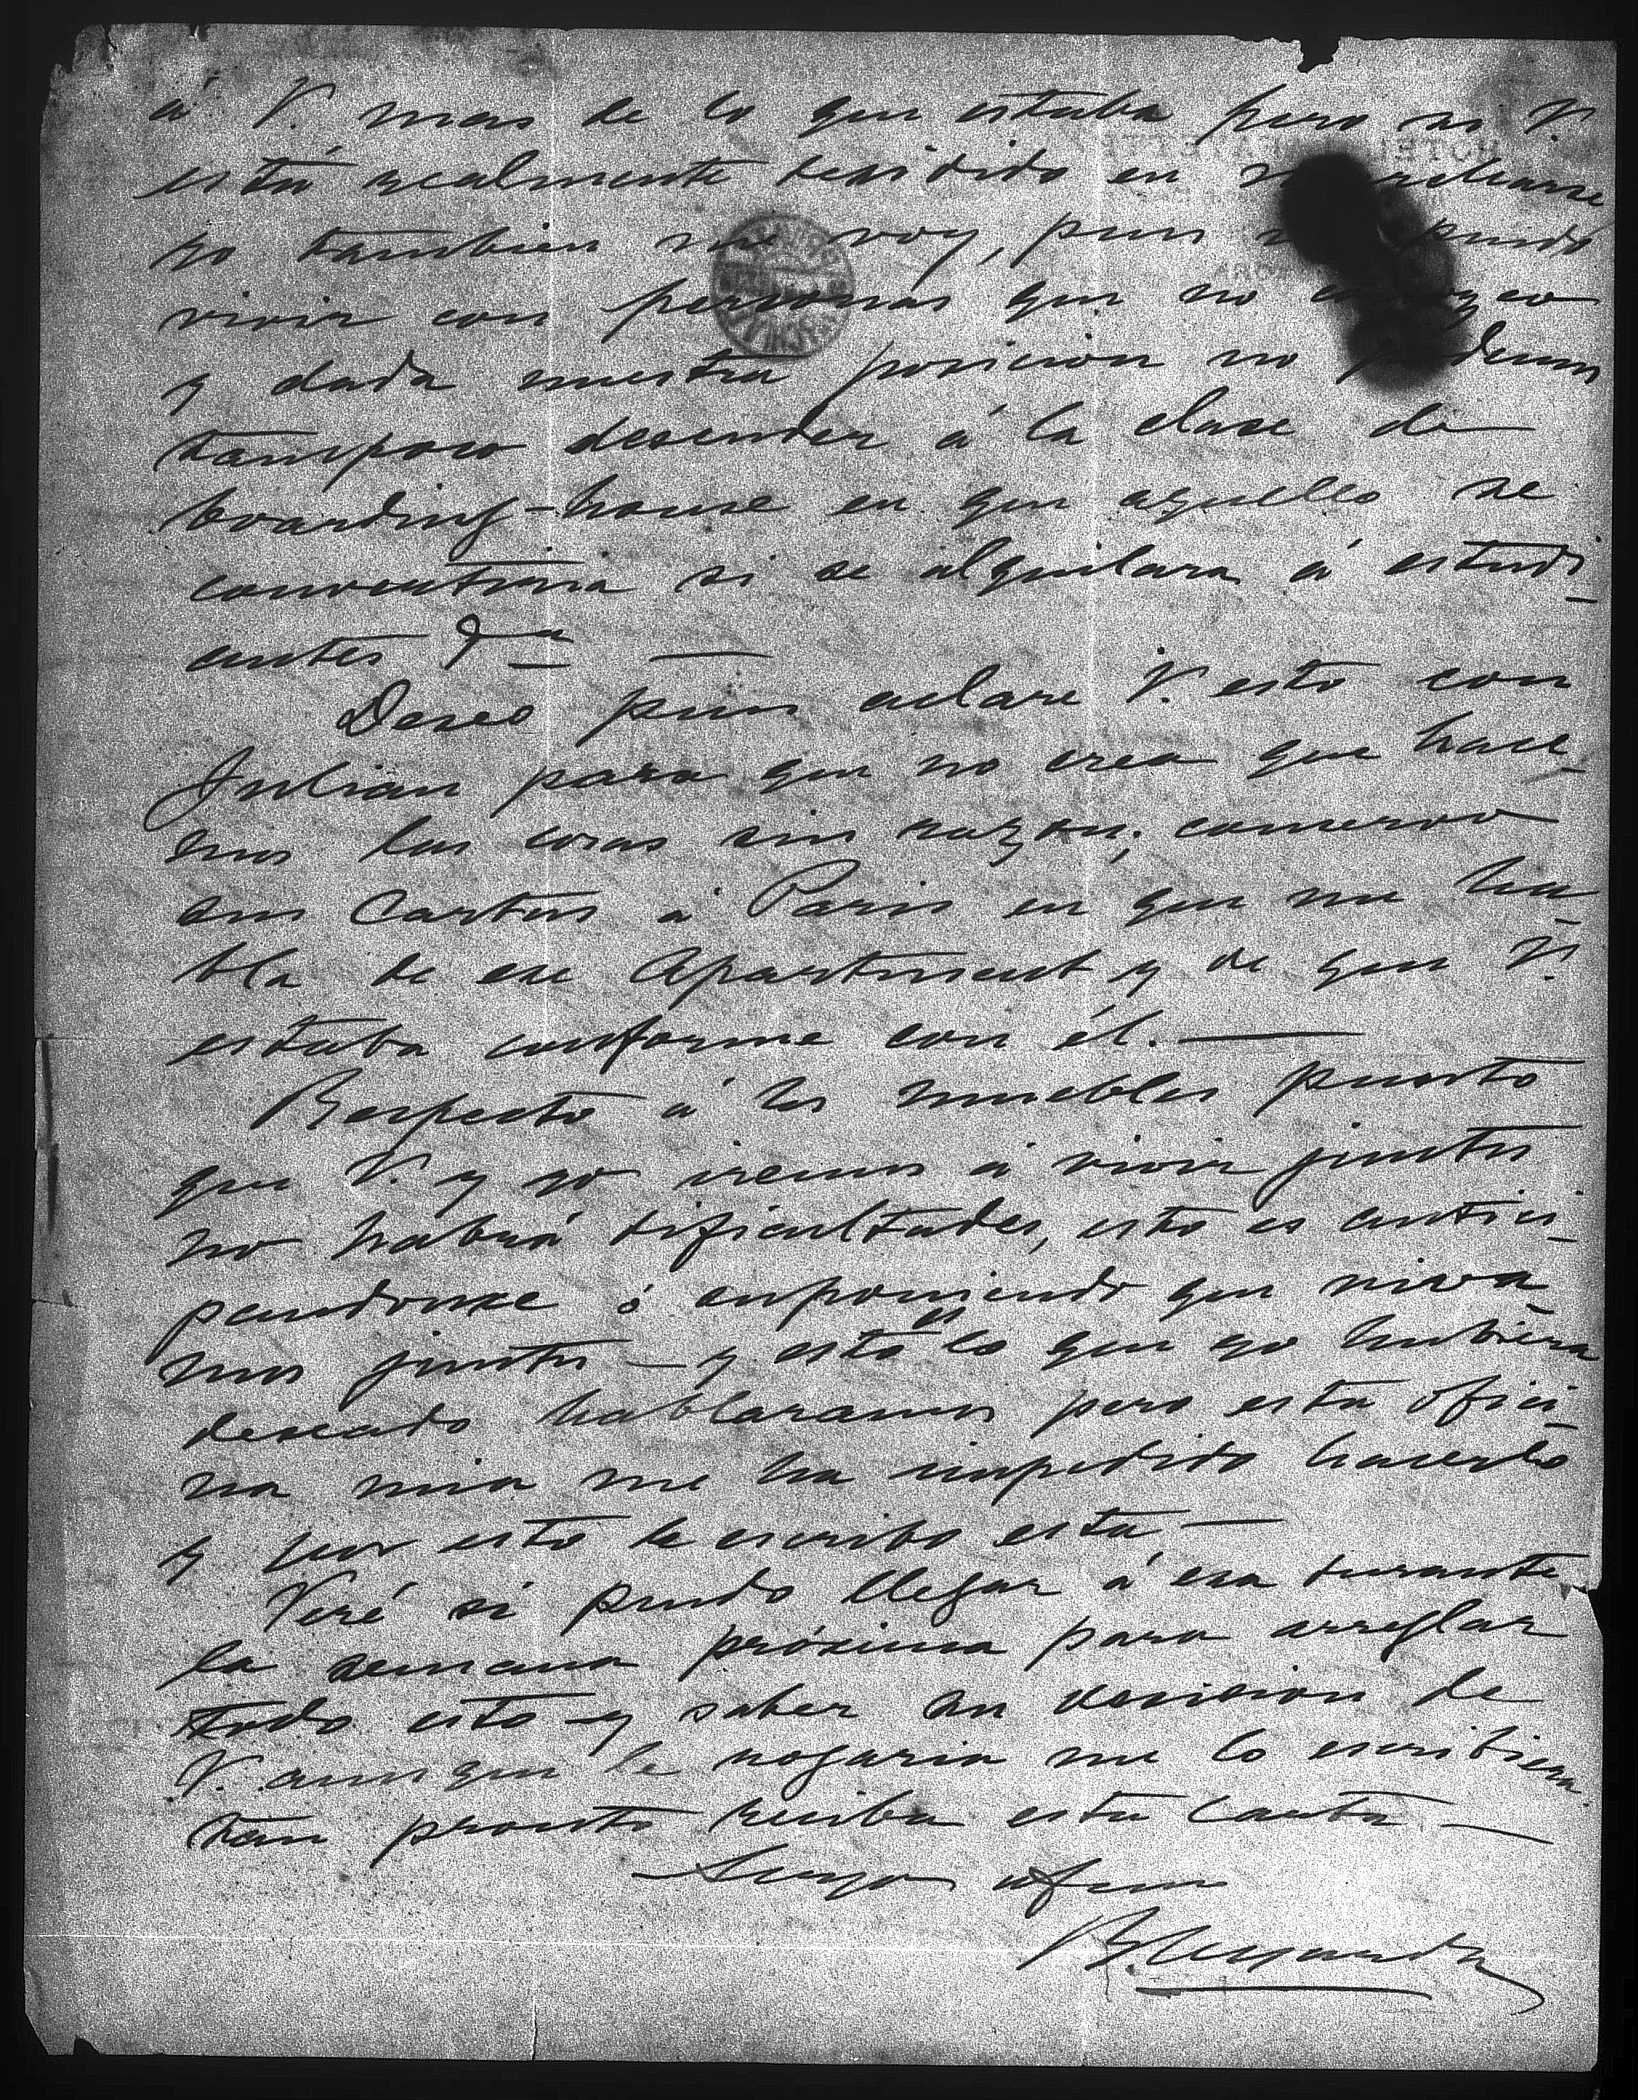 á V. mas de lo que estaba pero si V.
está realmente desidido en
yo tambien me voy, pues puedo
vivir con personas que no
y dada nuestra posicion no podemos
tampoco desender á la clase de
boarding-house en que aquello se
conventiria si se alquilara á estudi-
antes &a —
Deseo pues aclare V. esto con
Julian para que no crea que hace-
mos las cosas sin razon; conservo
sus Cartas á Paris en que me ha-
bla de ese Apartment y de que V.
estaba conforme con él. —
Respecto á los muebles puesto
que V. y yo iremos á vivir juntos
no habrá dificultades, esto es antici-
pandonse ó suponiendo que viva-
mos juntos — y esto es lo que yo hubiera
deseado hablaramos pero esta ofici-
na mia me ha impedido hacerlo
y por esto le escribo esta —
Veré si puedo llegar á esa durante
la semana próxima para arreglar
todo esto y saber su desicion de
V. aunque le rogaria me lo escribiera
tan pronto reciba esta Carta —
Suyo afmo